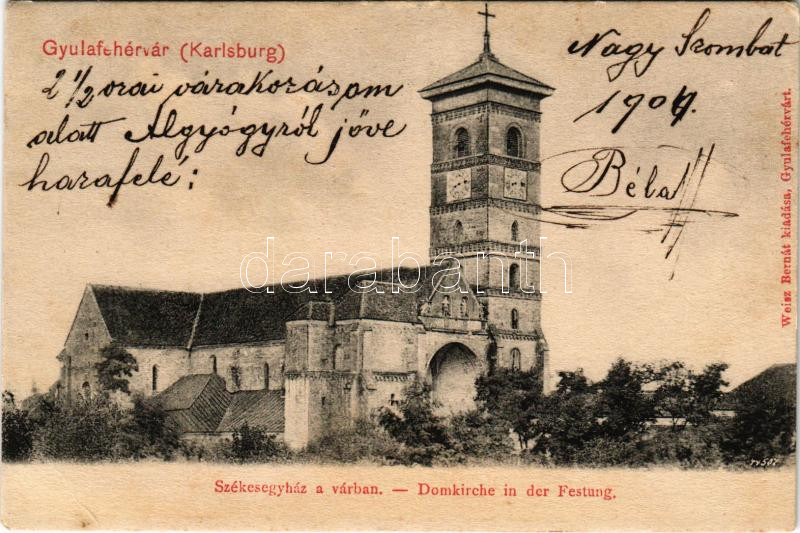 Gyulafehérvár (Karlsburg)
2 1/2 orai várakozásom
alatt Algyógyról jöve
hazafelé:
Nagy Szombat
1904.
Béla
Weisz Bernát kiadása, Gyulafehérvárt.
darabanth
Székesegyház a várban. — Domkirche in der Festung.